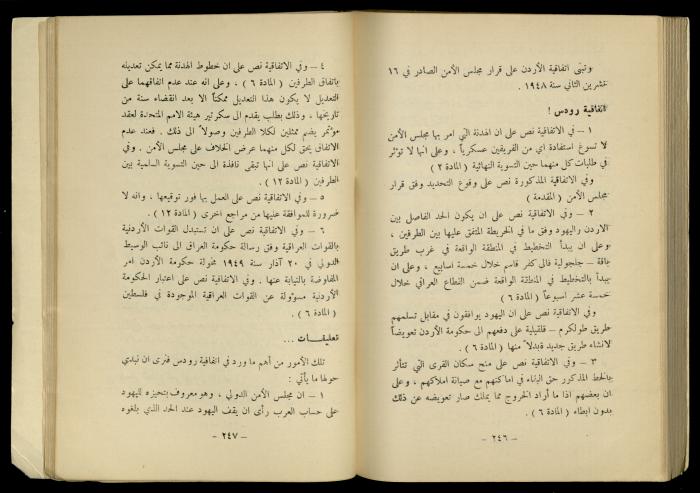 وتبنى اتفاقية الأردن على قرار مجلس الأمن الصادر في ١٦
تشرين الثاني سنة ١٩٤٨ .
اتفاقية رودس !
١ – في الاتفاقية نص على ان الهدنة التي امر بها مجلس الأمن
لا تسوغ استفادة اي من الفريقين عسكرياً ، وعلى انها لا تؤثر
في طلبات كل منهما حين التسوية النهائية ( المادة ٢ )
وفي الاتفاقية المذكورة نص على وقوع التحديد وفق قرار
مجلس الأمن ( المقدمة )
٢ – وفي الاتفاقية نص على ان يكون الحد الفاصل بين
الاردن واليهود وفق ما في الخريطة المتفق عليها بين الطرفين ،
وعلى ان يبدأ التخطيط في المنطقة الواقعة في غرب طريق
باقة – جلجولية فالى كفر قاسم خلال خمسة اسابيع ، وعلى ان
يبدأ بالتخطيط في المنطقة الواقعة ضمن القطاع العراقي خلال
خمسة عشر اسبوعاً ( المادة ٦ )
وفي الاتفاقية نص على ان اليهود يوافقون في مقابل تسلمهم
طريق طولكرم – قلقيلية على دفعهم الى حكومة الأردن تعويضاً
لانشاء طريق جديد بدلاً منها ( المادة ٦ ) .
٣ – وفي الاتفاقية نص على منح سكان القرى التي تتأثر
بالخط المذكور حق البقاء في اماكنهم مع صيانة املاكهم ، وعلى
ان بعضهم اذا ما أراد الخروج مما يملك صار تعويضه عن ذلك
بدون ابطاء ( المادة ٦ ) .
٢٤٦
٤ – وفي الاتفاقية نص على ان خطوط الهدنة مما يمكن تعديله
باتفاق الطرفين ( المادة ٦ ) ، وعلى انه عند عدم اتفاقهما على
التعديل لا يكون هذا التعديل ممكناً الا بعد انقضاء سنة من
تاريخها ، وذلك بطلب يقدم الى سكرتير هيئة الامم المتحدة لعقد
مؤتمر يضم ممثلين لكلا الطرفين وصولاً الى ذلك . فعند عدم
الاتفاق يحق لكل منهما عرض الخلاف على مجلس الأمن . وفي
الاتفاقية نص على انها تبقى نافذة الى حين التسوية السلمية بين
الطرفين ( المادة ١٢ ) .
٥ – وفي الاتفاقية نص على العمل بها فور توقيعها ، وانه لا
ضرورة للموافقة عليها من مراجع اخرى ( المادة ١٢ ) .
٦ – وفي الاتفاقية نص على ان تستبدل القوات الأردنية
بالقوات العراقية وفق رسالة حكومة العراق الى نائب الوسيط
الدولي في ٢٠ آذار سنة ١٩٤٩ مخولة حكومة الأردن امر
المفاوضة بالنيابة عنها . وفي الاتفاقية نص على اعتبار الحكومة
الأردنية مسؤولة عن القوات العراقية الموجودة في فلسطين
( المادة ٦ ) .
تعليقات ...
تلك الأمور من أهم ما ورد في اتفاقية رودس فنرى ان نبدي
حولها ما يأتي :
١ – ان مجلس الأمن الدولي ، وهو معروف بتحيزه لليهود
على حساب العرب رأى ان يقف اليهود عند الحد الذي بلغوه
٢٤٧